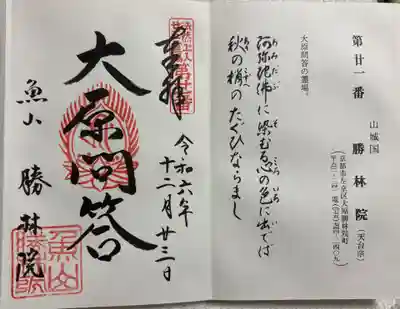 山城国
第廿一番　勝林院（天台宗）
京都市左京区大原勝林院町
大原問答の霊場。
阿弥陀佛に染むる心の色に出では
秋の梢のたぐひならまし
奉拝
令和六年
十二月廿三日
大原問答
魚山　勝林院